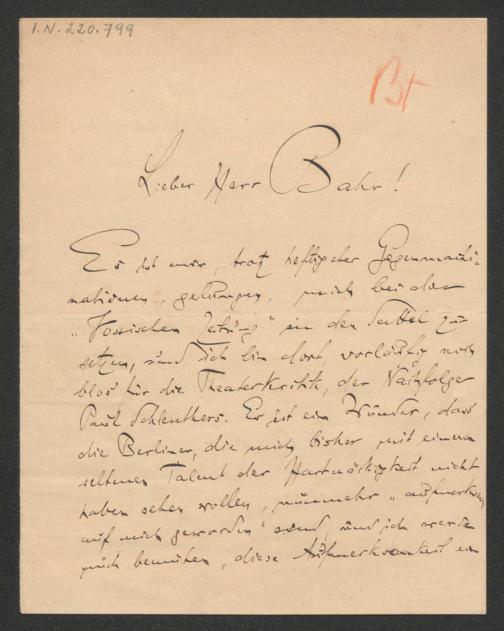 I.N. 220.799
Bt
Lieber Herr Bahr!
Es ist mir, trotz heftigster Gegenmachi-
nationen, gelungen, mich bei der
„Vossischen Zeitung“ in den Sattel zu
setzen, und ich bin dort, vorläufig noch
blos für die Theaterkritik, der Nachfolger
Paul Schlenthers. Es ist ein Wunder, dass
die Berliner, die mich bisher mit einem
seltenen Talent der Hartnäckigkeit nicht
haben sehen wollen, nunmehr „aufmerksam
auf mich geworden“ sind, und ich werde
mich bemühen, diese Aufmerksamkeit